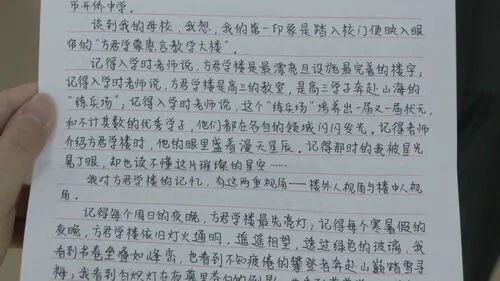 市开侨中学。
谈到我的母校，我想，我的第一印象是踏入校门便映入眼
帘的“方君学尊惠言教学大楼”。
记得入学时老师说，方君学楼是最漂亮且设施最完善的楼宇；
记得入学时老师说，方君学楼是高三的教室，是高三学子奔赴山海的
“练兵场”；记得入学时老师说，这个“练兵场”培养出一届又一届状元，
和不计其数的优秀学子，他们都在各自的领域闪闪发光。记得老师
介绍方君学楼时，他的眼里盛着漫天星辰。记得那时的我被星光
晃了眼，却也读不懂这片璀璨的星空……
我对方君学楼的记忆，有这两重视角——楼外人视角与楼中人视
角。
记得每个周日的夜晚，方君学楼最先亮灯；记得每个寒暑假的
夜晚，方君学楼依旧灯火通明，遥遥相望，透过绿色的玻璃，我
看到书卷垒叠如峰峦，也看到不知疲倦的攀登者奔赴山巅踏雪寻
梅；我看到白炽灯在夜幕里